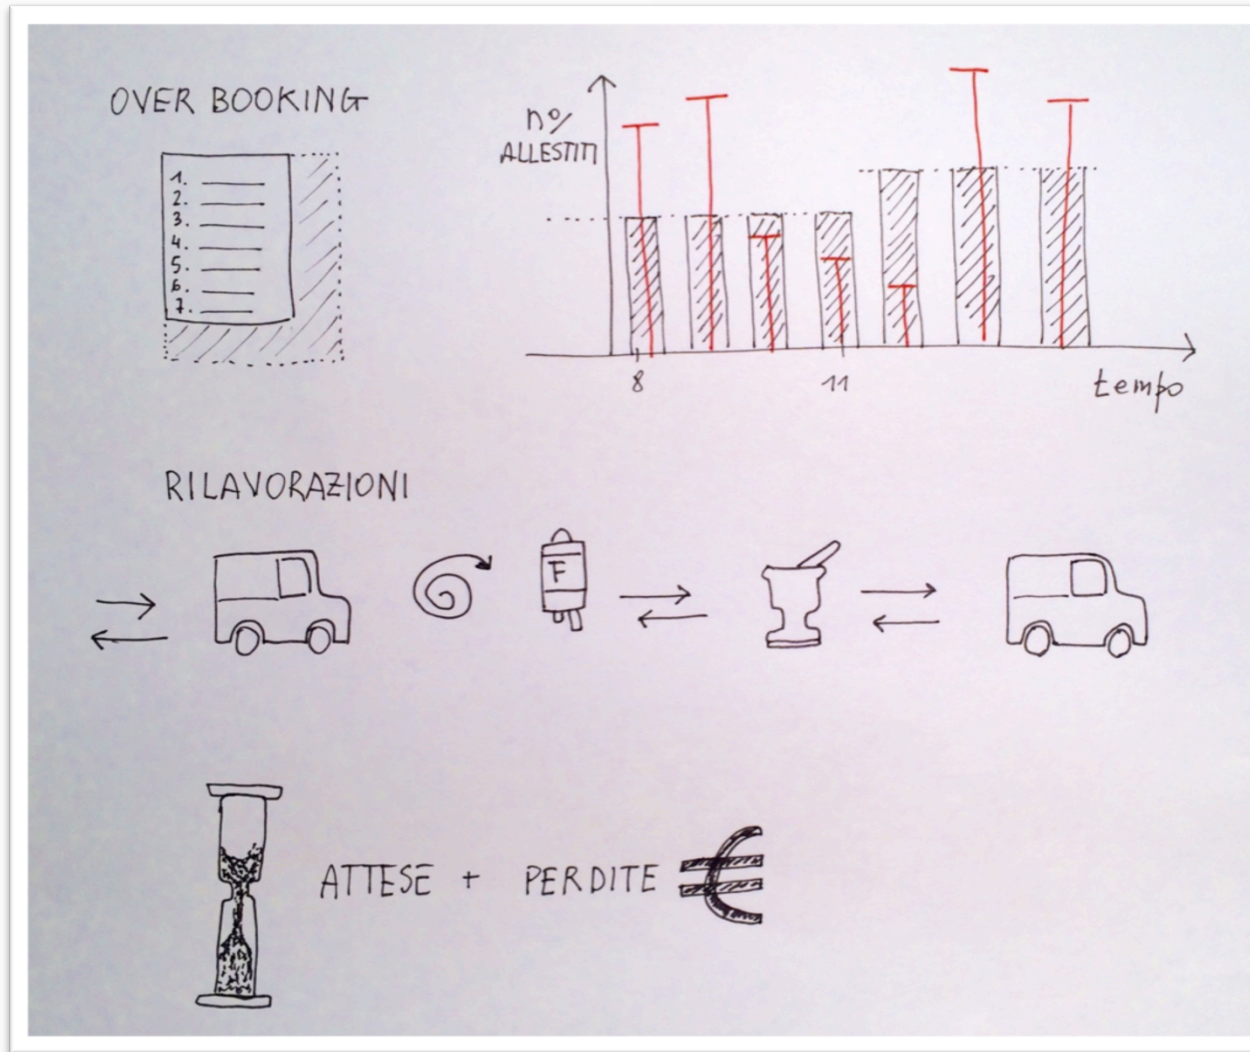 OVER BOOKING
1.
2.
3.
4.
5.
6.
7.
n°/
ALLESTITI
8
11
tempo
RILAVORAZIONI
F
ATTESE + PERDITE €